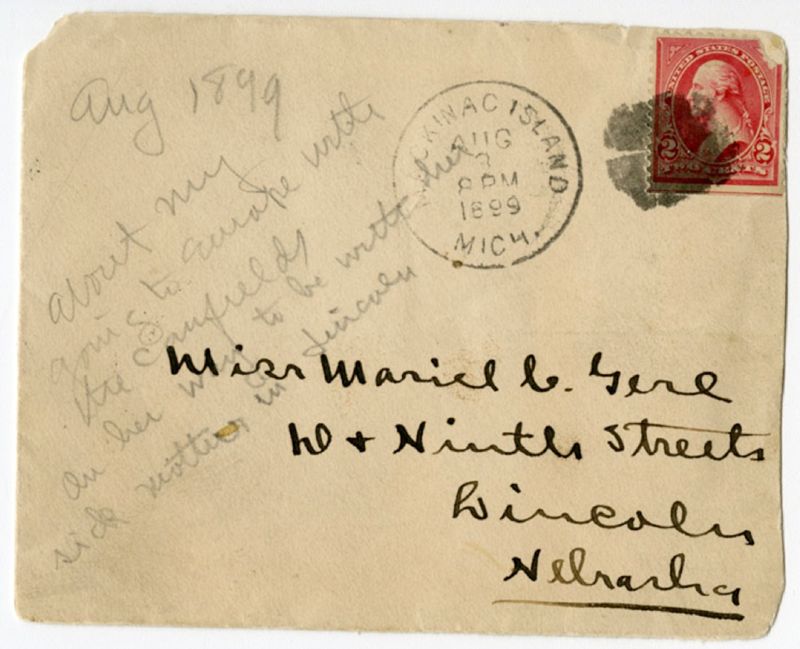 Aug 1899
about my
going to Europe with
the Canfields
on her way to be with her
sick mother in Lincoln
MACKINAC ISLAND
AUG
3
8 PM
1899
MICH.
UNITED STATES POSTAGE
2 2
TWO CENTS
Miss Mariel C. Gere
D + Ninth Streets
Lincoln
Nebraska